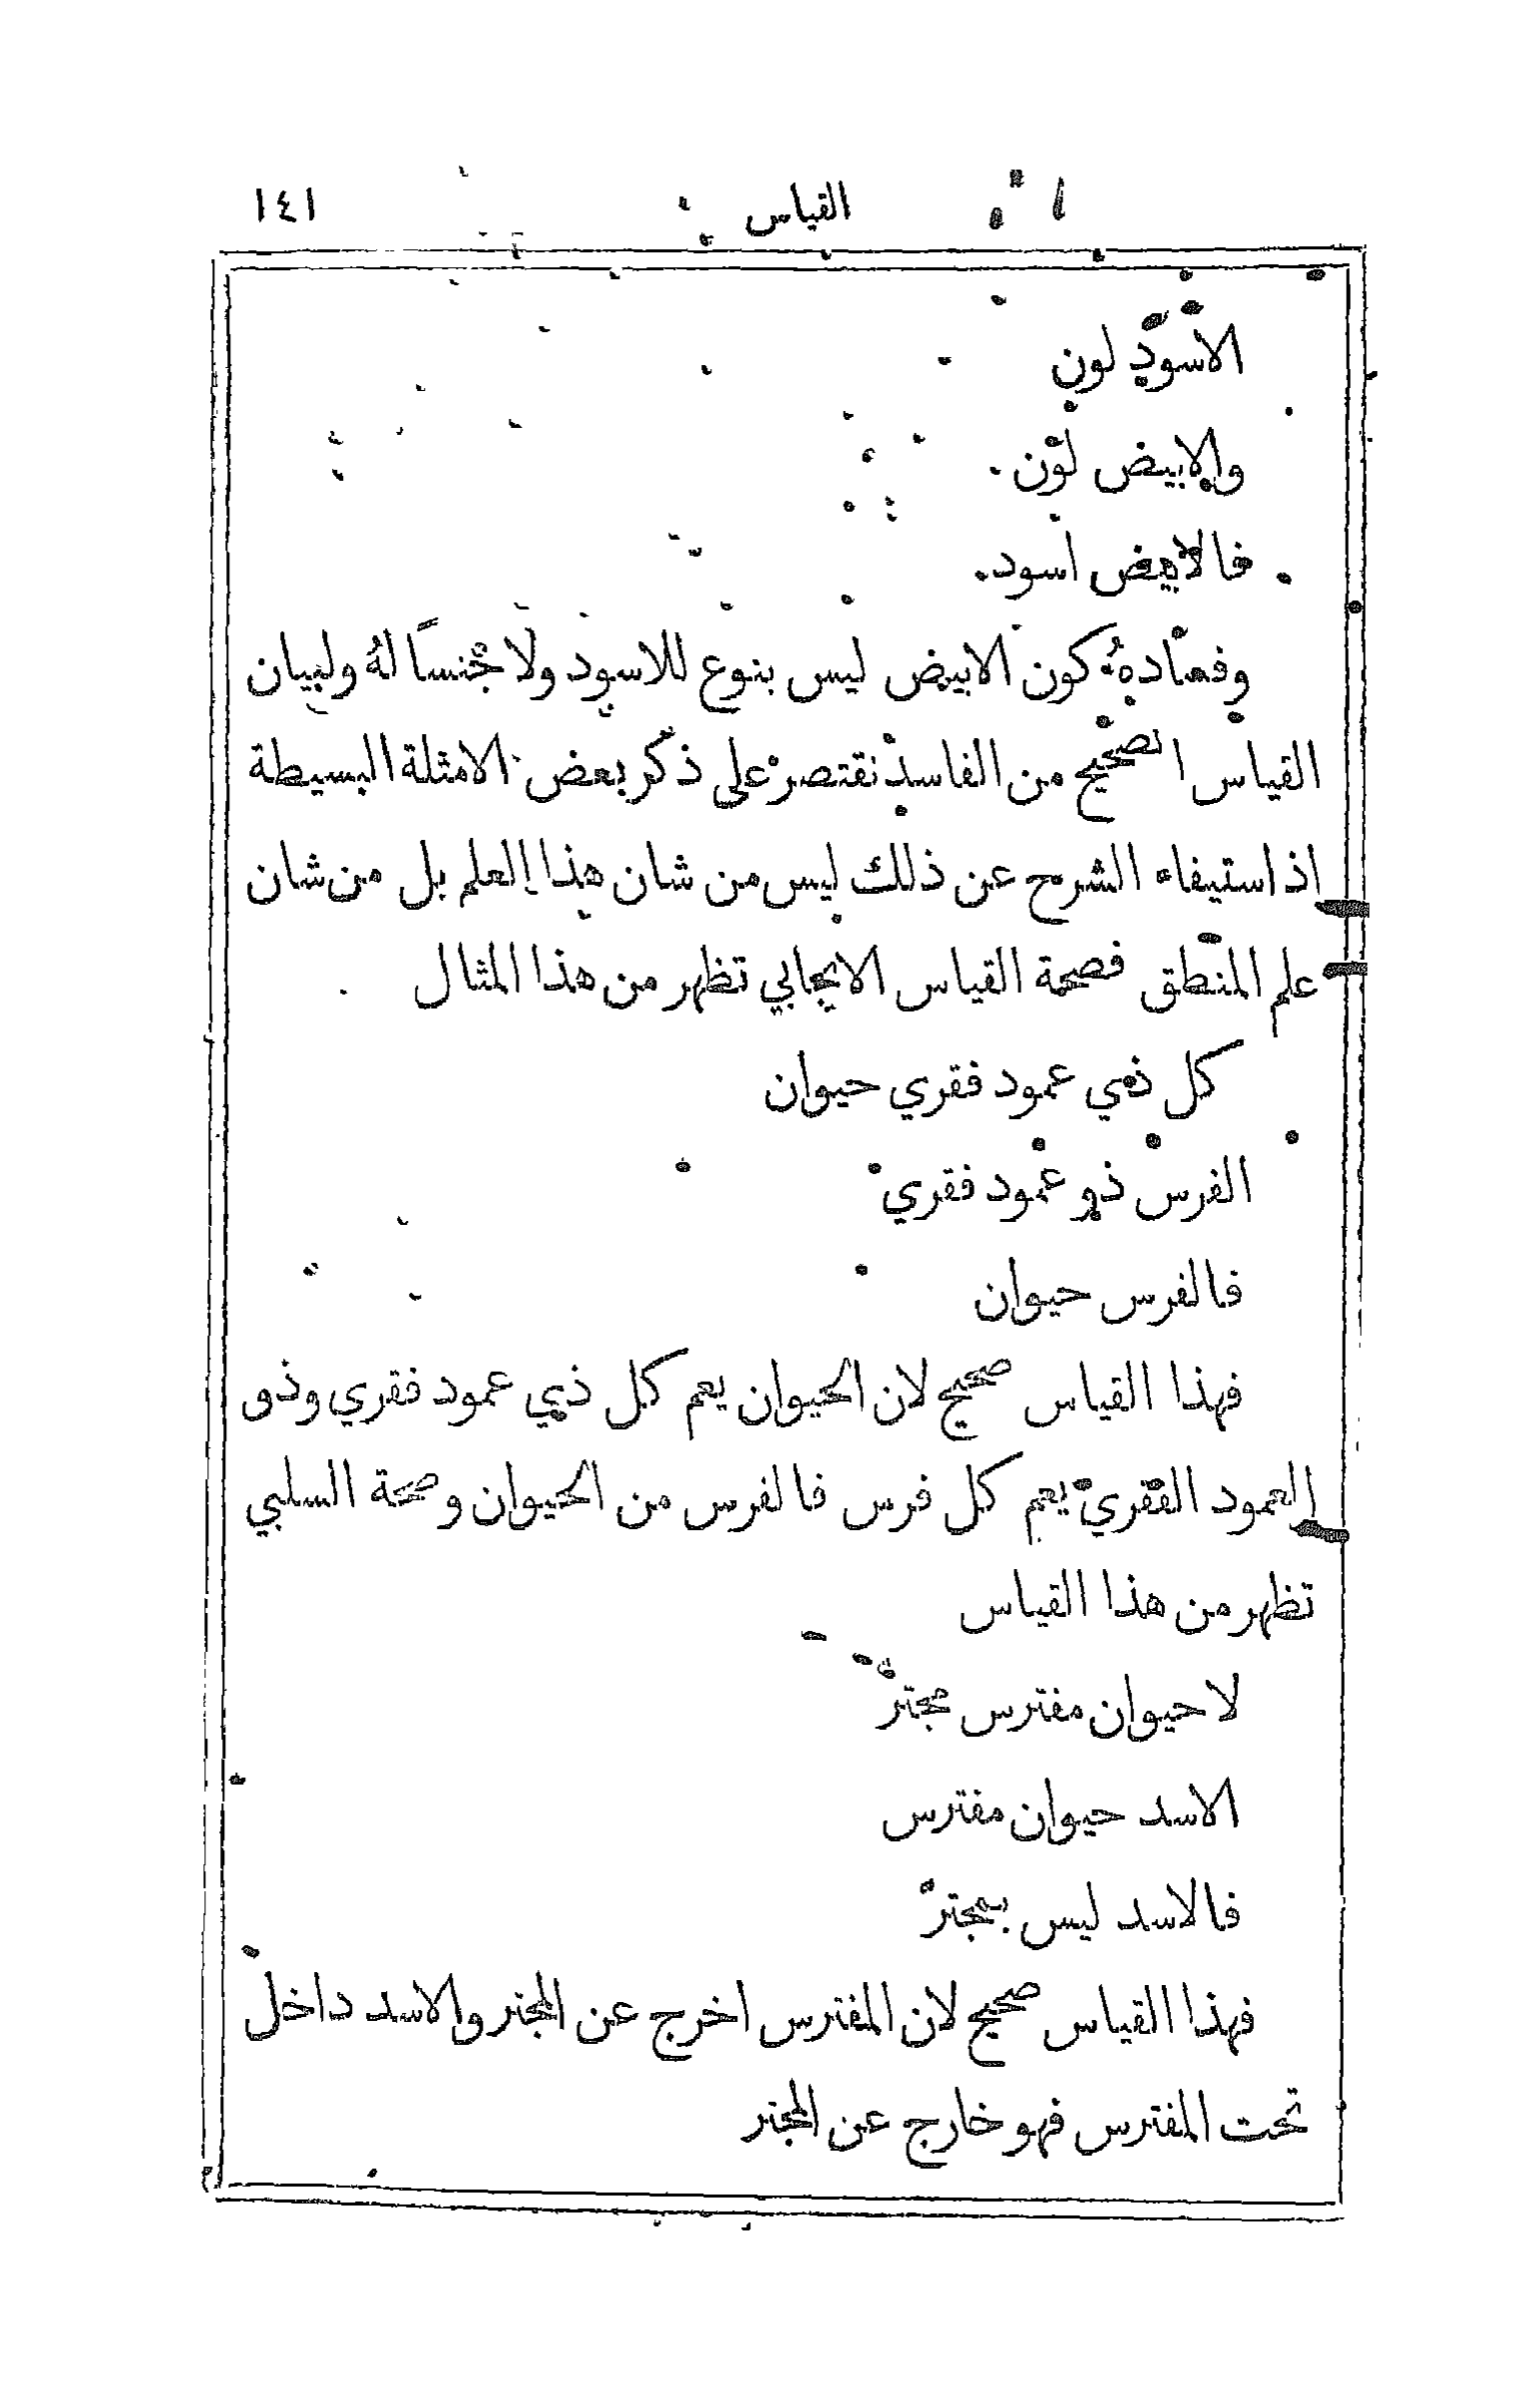 القياس ١٤١
الاسود لون
والابيض لون.
فالابيض اسود.
وفساده كون الابيض ليس بنوع للاسود ولا جنسًا لهُ ولبيان
القياس الصحيح من الفاسد نقتصر على ذكر بعض الامثلة البسيطة
اذ استيفاء الشرح عن ذلك ليس من شان هذا العلم بل من شان
علم المنطق فصحة القياس الايجابي تظهر من هذا المثال
كل ذي عمود فقري حيوان
الفرس ذو عمود فقري
فالفرس حيوان
فهذا القياس صحيح لان الحيوان يعم كل ذي عمود فقري وذو
العمود الفقري يعم كل فرس فالفرس من الحيوان وصحة السلبي
تظهر من هذا القياس
لا حيوان مفترس مجترّ
الاسد حيوان مفترس
فالاسد ليس بمجترّ
فهذا القياس صحيح لان المفترس اخرج عن المجتر والاسد داخل
تحت المفترس فهو خارج عن المجتر